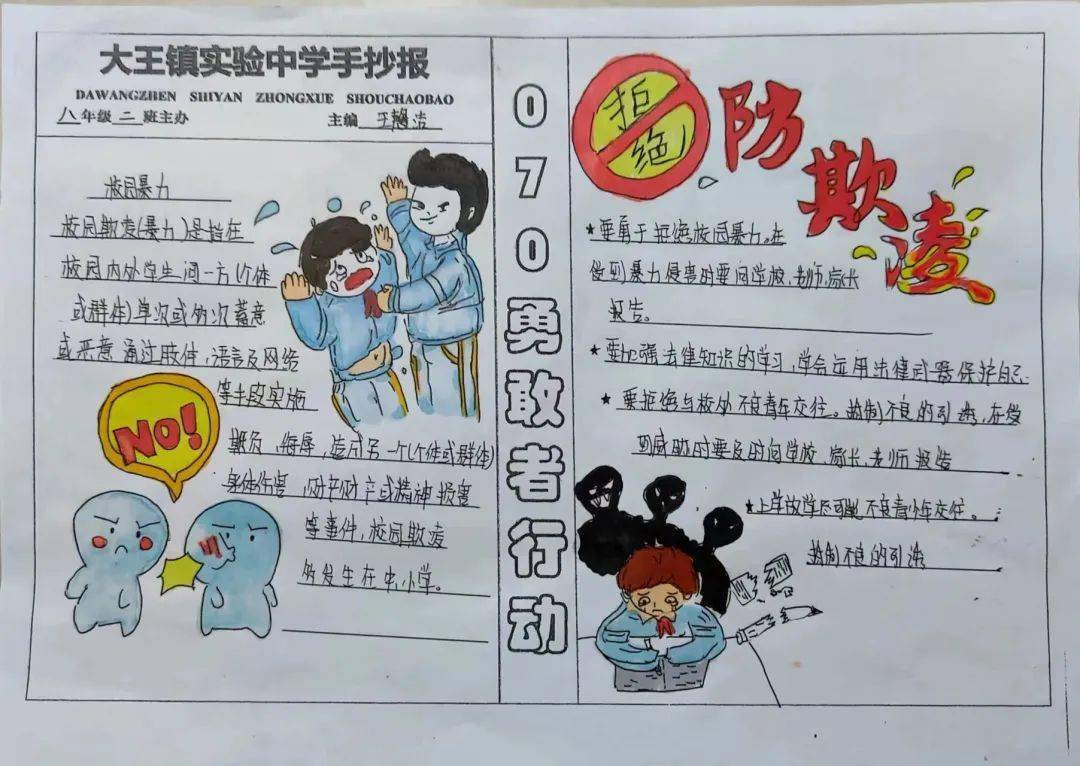 大王镇实验中学手抄报
DAWANGZHEN SHIYAN ZHONGXUE SHOUCHAOBAO
八年级二班主办 主编 王 洁
校园暴力
校园欺凌(暴力)是指在
校园内外学生间一方(个体
或群体)单次或多次蓄意
或恶意通过肢体,语言及网络
等手段实施
欺负,侮辱,造成另一个(个体或群体)
身体伤害,财产或精神损害
等事件,校园欺凌
多发生在中小学。
NO!
070勇敢者行动
拒绝
防欺凌
★要勇于拒绝校园暴力。在
受到暴力侵害时要向学校,老师,家长
报告。
★要加强法律知识的学习,学会运用法律武器保护自己
★要拒绝与校外不良青年交往。抵制不良的引诱,在受
到威胁时要及时向学校,家长,老师报告
★上学放学尽可能不良青年交往。
抵制不良的引诱